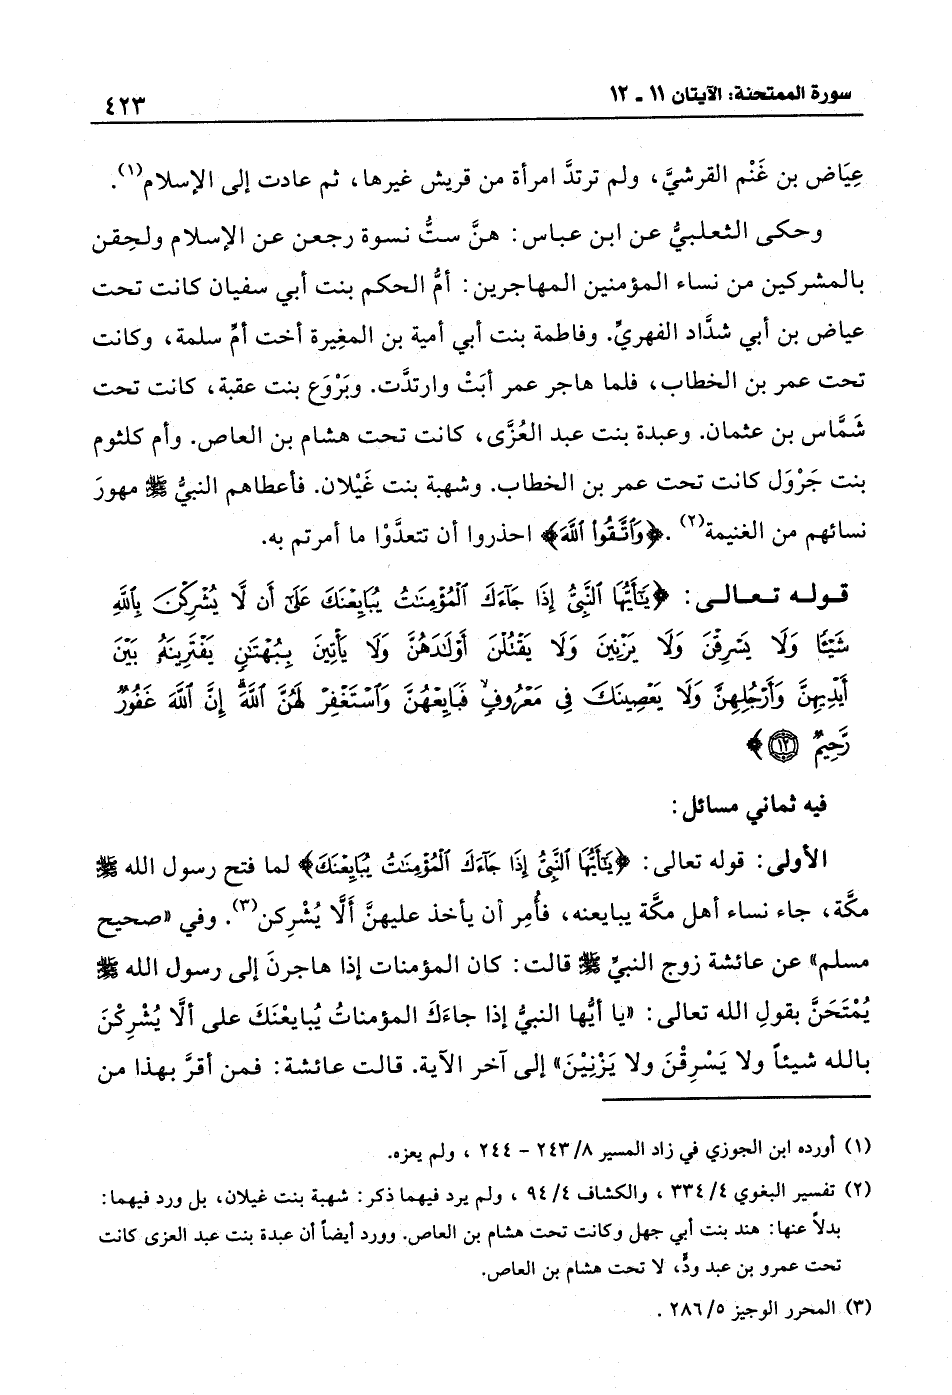 سورة الممتحنة: الآيتان ١١ ـ ١٢
٤٢٣
عِيَاض بن غَنْم القرشيَّ، ولم ترتدَّ امرأة من قريش غيرها، ثم عادت إلى الإسلام(١).
وحكى الثعلبيُّ عن ابن عباس: هنَّ ستُّ نسوة رجعن عن الإسلام ولحِقن
بالمشركين من نساء المؤمنين المهاجرين: أمُّ الحكم بنت أبي سفيان كانت تحت
عياض بن أبي شدَّاد الفهريِّ. وفاطمة بنت أبي أمية بن المغِيرة أخت أمِّ سلمة، وكانت
تحت عمر بن الخطاب، فلما هاجر عمر أبَتْ وارتدَّت. وبَرْوَع بنت عقبة، كانت تحت
شَمَّاس بن عثمان. وعبدة بنت عبد العُزَّى، كانت تحت هشام بن العاص. وأم كلثوم
بنت جَرْوَل كانت تحت عمر بن الخطاب. وشهبة بنت غَيْلان. فأعطاهم النبيُّ ﷺ مهورَ
نسائهم من الغنيمة(٢). ﴿وَاتَّقُوا اللَّهَ﴾ احذروا أن تتعدَّوْا ما أمرتم به.
قوله تعالى: ﴿يَٰٓأَيُّهَا ٱلنَّبِيُّ إِذَا جَآءَكَ ٱلْمُؤْمِنَٰتُ يُبَايِعْنَكَ عَلَىٰٓ أَن لَّا يُشْرِكْنَ بِٱللَّهِ
شَيْـًٔا وَلَا يَسْرِقْنَ وَلَا يَزْنِينَ وَلَا يَقْتُلْنَ أَوْلَٰدَهُنَّ وَلَا يَأْتِينَ بِبُهْتَٰنٍ يَفْتَرِينَهُۥ بَيْنَ
أَيْدِيهِنَّ وَأَرْجُلِهِنَّ وَلَا يَعْصِينَكَ فِى مَعْرُوفٍ ۙ فَبَايِعْهُنَّ وَٱسْتَغْفِرْ لَهُنَّ ٱللَّهَ ۖ إِنَّ ٱللَّهَ غَفُورٌ
رَّحِيمٌ ۝١٢﴾
فيه ثماني مسائل:
الأولى: قوله تعالى: ﴿يَٰٓأَيُّهَا ٱلنَّبِيُّ إِذَا جَآءَكَ ٱلْمُؤْمِنَٰتُ يُبَايِعْنَكَ﴾ لما فتح رسول الله ﷺ
مكَّة، جاء نساء أهل مكَّة يبايعنه، فأُمِر أن يأخذ عليهنَّ أَلَّا يُشْرِكن(٣). وفي «صحيح
مسلم» عن عائشة زوج النبيِّ ﷺ قالت: كان المؤمنات إذا هاجرنَ إلى رسول الله ﷺ
يُمْتَحَنَّ بقولِ الله تعالى: «يا أيُّها النبيُّ إذا جاءَكَ المؤمناتُ يُبايعْنَكَ على ألَّا يُشْرِكْنَ
بالله شيئاً ولا يَسْرِقْنَ ولا يَزْنِيْنَ» إلى آخر الآية. قالت عائشة: فمن أقرَّ بهذا من
(١) أورده ابن الجوزي في زاد المسير ٨/ ٢٤٣ - ٢٤٤ ، ولم يعزه.
(٢) تفسير البغوي ٤/ ٣٣٤ ، والكشاف ٤/ ٩٤ ، ولم يرد فيهما ذكر: شهبة بنت غيلان، بل ورد فيهما:
بدلاً عنها: هند بنت أبي جهل وكانت تحت هشام بن العاص. وورد أيضاً أن عبدة بنت عبد العزى كانت
تحت عمرو بن عبد ودٍّ، لا تحت هشام بن العاص.
(٣) المحرر الوجيز ٥/ ٢٨٦ .